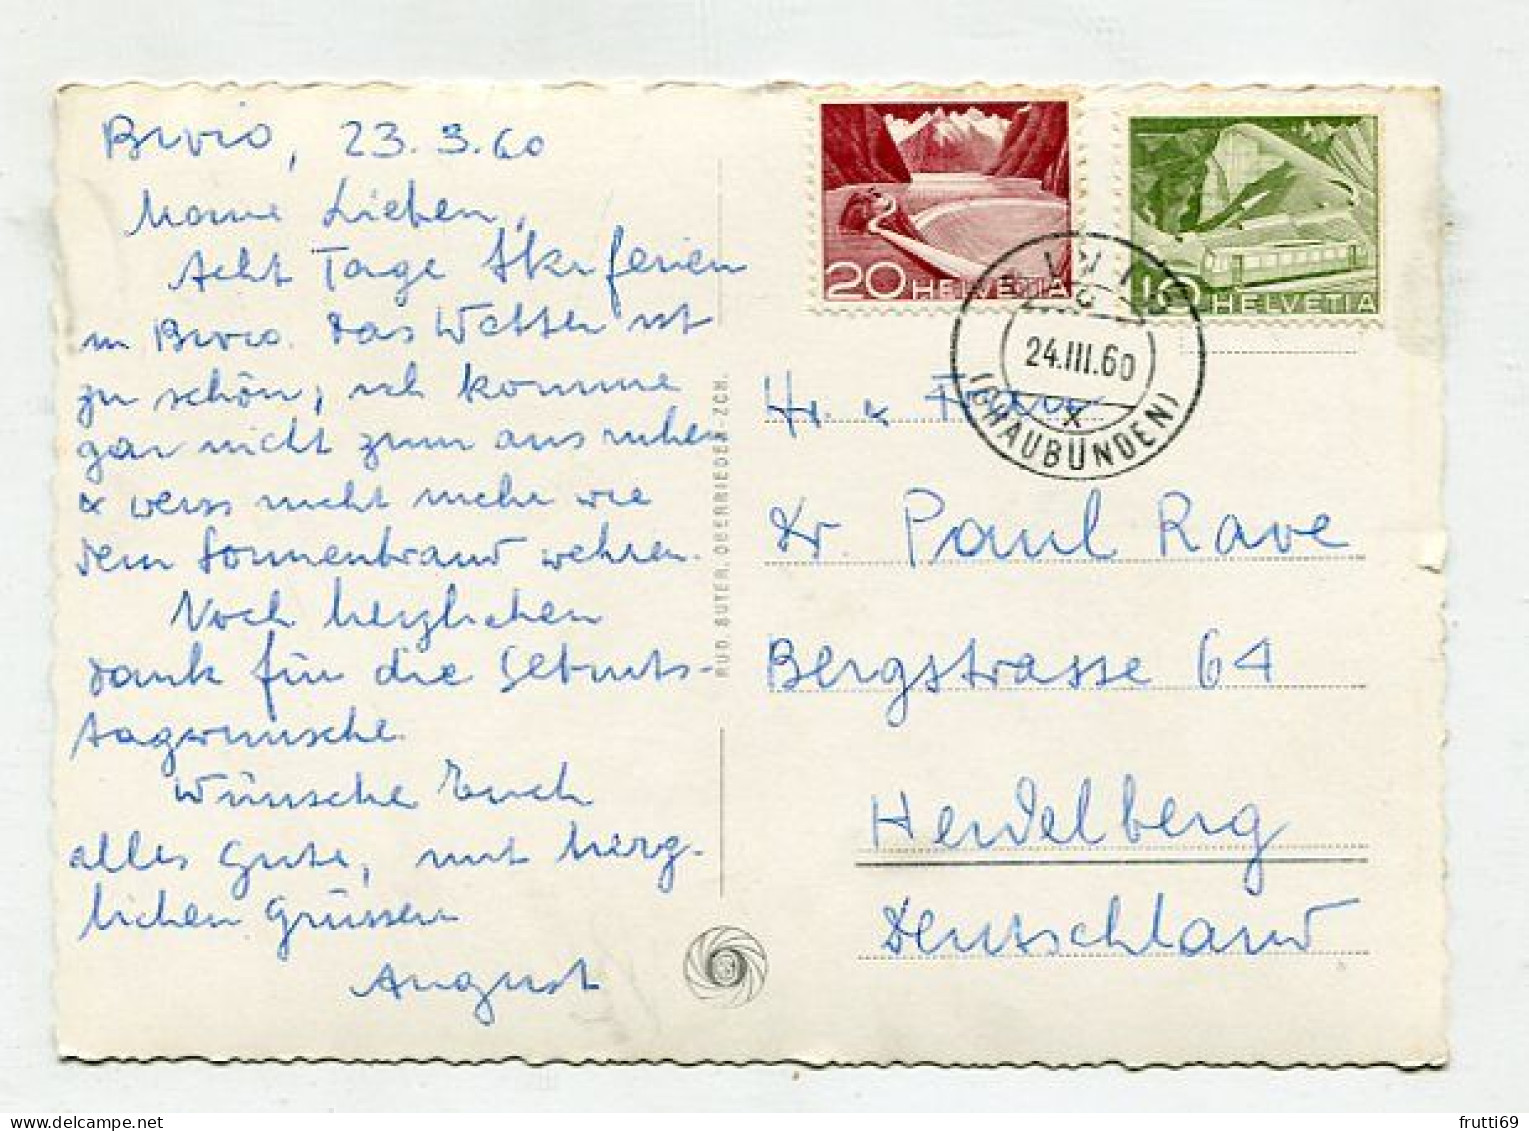 Bivio, 23.3.60
Meine Lieben,
Acht Tage Skiferien
in Bivio. Das Wetter ist
zu schön, ich komme
gar nicht zum ausruhen
& weiss nicht mehr wie
dem Sonnenbrand wehren.
Noch herzlichen
Dank für die Geburts-
tagswünsche.
Wünsche Euch
alles Gute, mit herz-
lichen Grüssen
August
RUD. SUTER, OBERRIEDEN-ZCH.
20 HELVETIA
10 HELVETIA
BIVIO
24.III.60
X
(GRAUBÜNDEN)
Hr. & Frau
Dr. Paul Rave
Bergstrasse 64
Heidelberg
Deutschland
frutti69